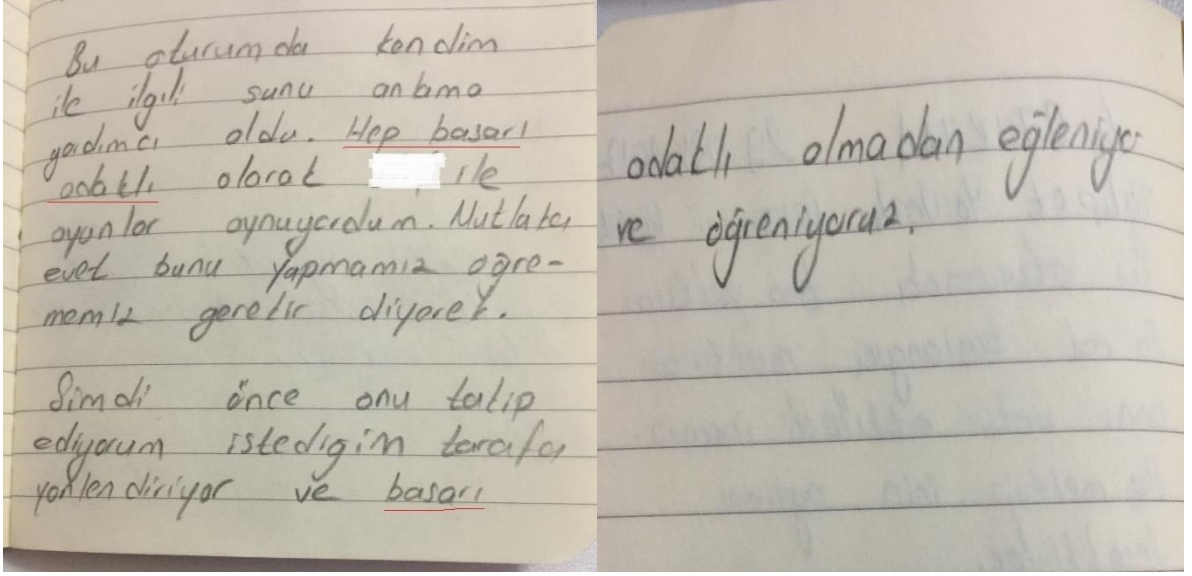 Bu oturumda kendim
ile ilgili sunu anlama
yardımcı oldu. Hep basarı
odaklı olarak ile
oyunlar oynuyordum. Mutlaka
evet bunu yapmamız öğre-
memiz gerekir diyerek.
Simdi önce onu takip
ediyorum istedigim tarafa
yonlendiriyor ve basarı
odaklı olmadan eğleniyor
ve öğreniyoruz.